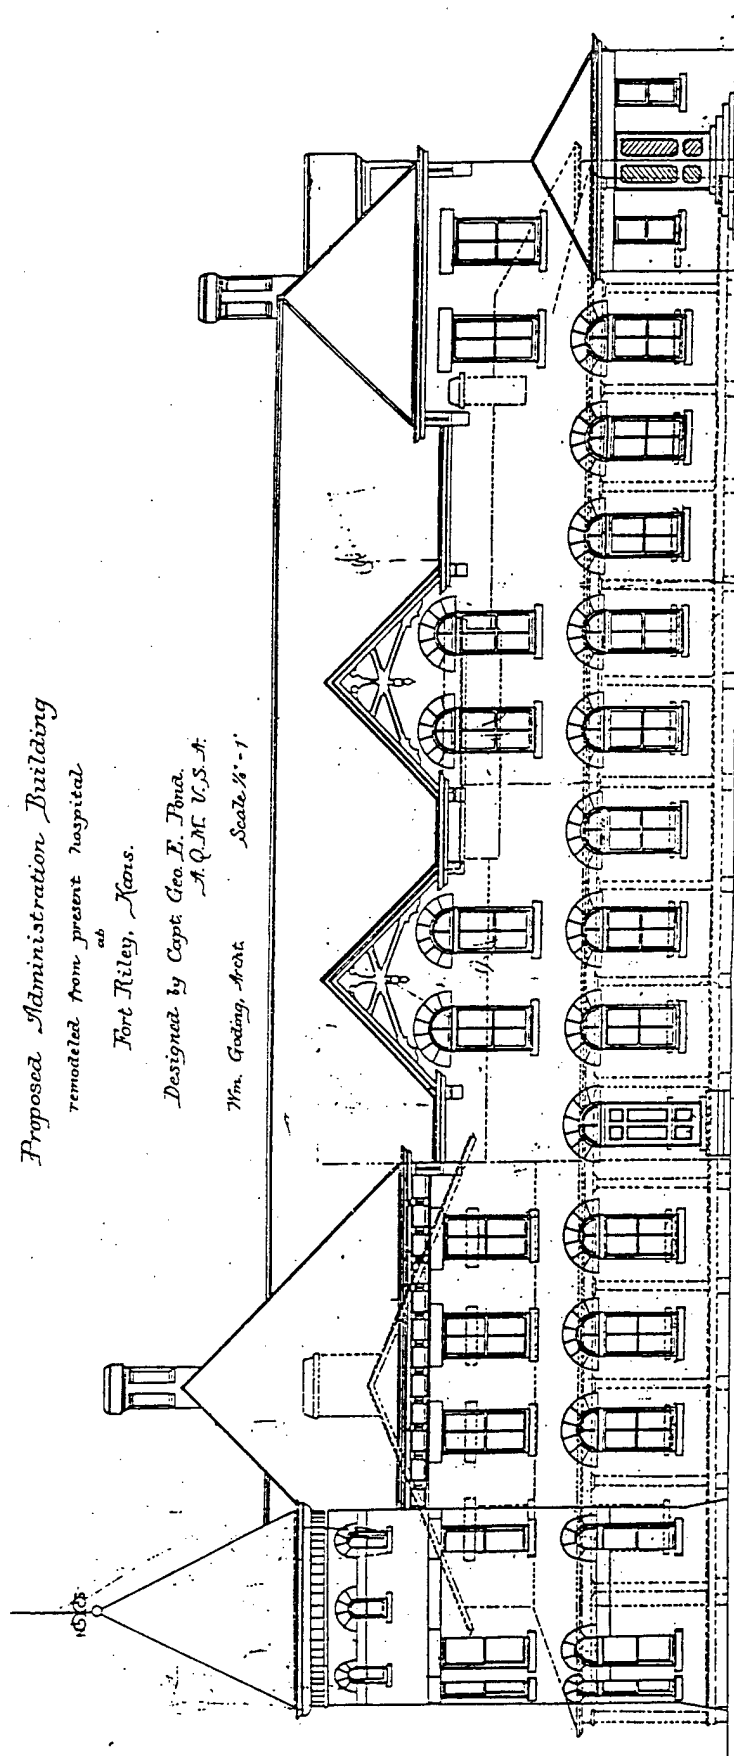 Proposed Administration Building
remodeled from present hospital
at
Fort Riley, Kans.
Designed by Capt. Geo. E. Pond.
A. Q. M. U. S. A.
Wm. Goding, Archt. Scale ⅛" = 1'